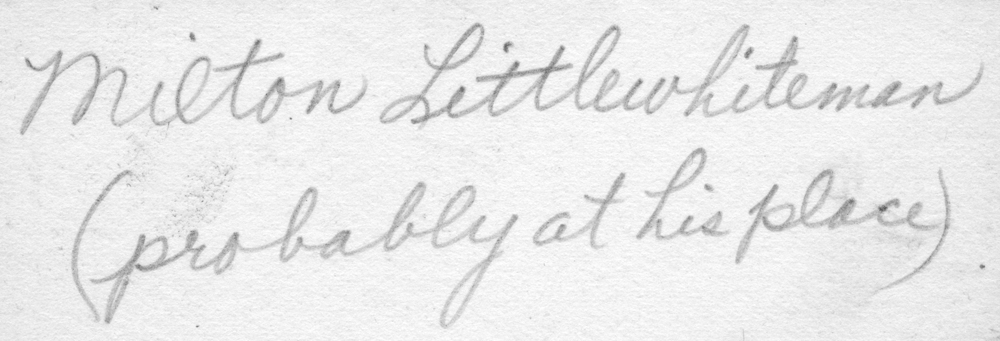 Milton Littlewhiteman
(probably at his place)